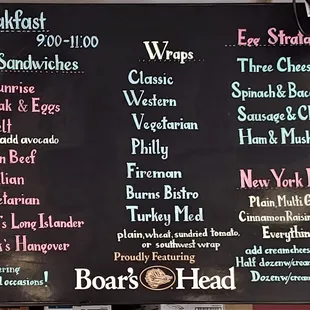 akfast
9:00-11:00
Sandwiches
unrise
ak & Eggs
elt
add avocado
n Beef
lian
etarian
's Long Islander
k's Hangover
ering
l occasions!
Wraps
Classic
Western
Vegetarian
Philly
Fireman
Burns Bistro
Turkey Med
plain, wheat, sundried tomato,
or southwest wrap
Proudly Featuring
Boar's Head
Egg Strata
Three Chees
Spinach & Bac
Sausage & Ch
Ham & Mush
New York
Plain, Multi G
Cinnamon Raisin
Everythin
add creamchees
Half dozen w/cream
Dozen w/cream